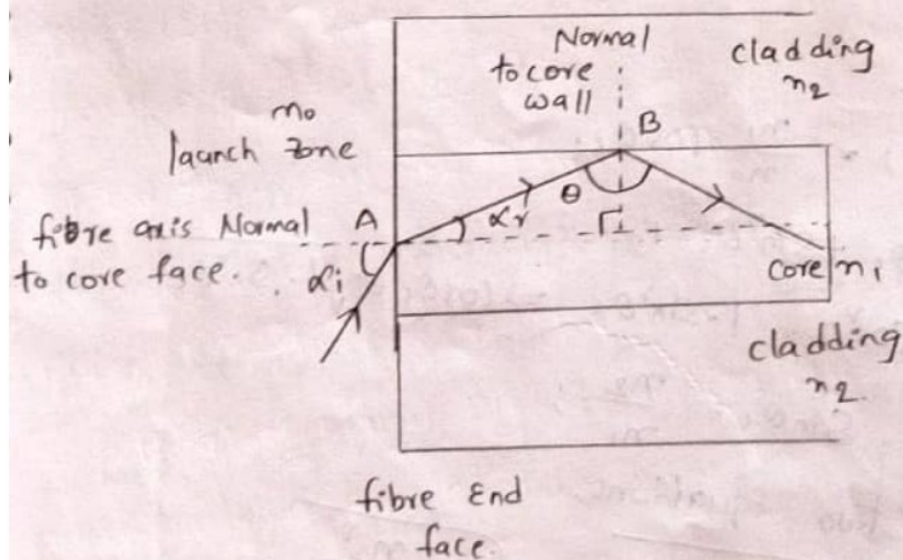 Normal
to core
wall
cladding
n2
B
no
launch zone
θ
fibre axis Normal
to core face.
A
αr
αi
core n1
cladding
n2.
fibre End
face.